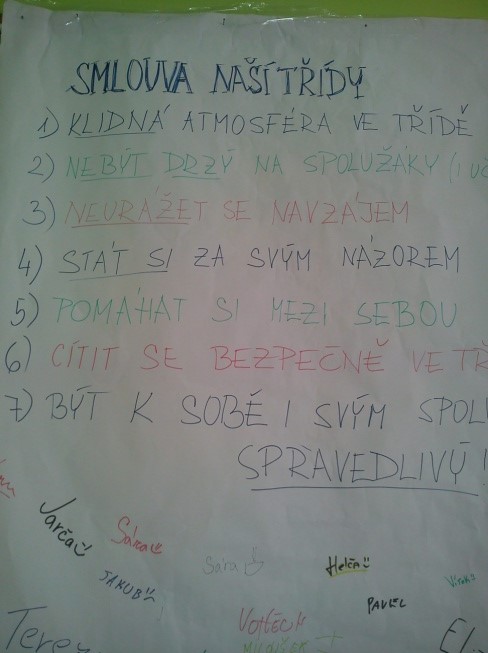 SMLOUVA NAŠÍ TŘÍDY
1) KLIDNÁ ATMOSFÉRA VE TŘÍDĚ
2) NEBÝT DRZÝ NA SPOLUŽÁKY (I UČ
3) NEURÁŽET SE NAVZÁJEM
4) STÁT SI ZA SVÝM NÁZOREM
5) POMÁHAT SI MEZI SEBOU
6) CÍTIT SE BEZPEČNĚ VE TŘ
7) BÝT K SOBĚ I SVÝM SPOLU
SPRAVEDLIVÝ!
Jarča
Sára
Sára
Helča
JAKUB
PAVEL
VOJTĚCH
Terez